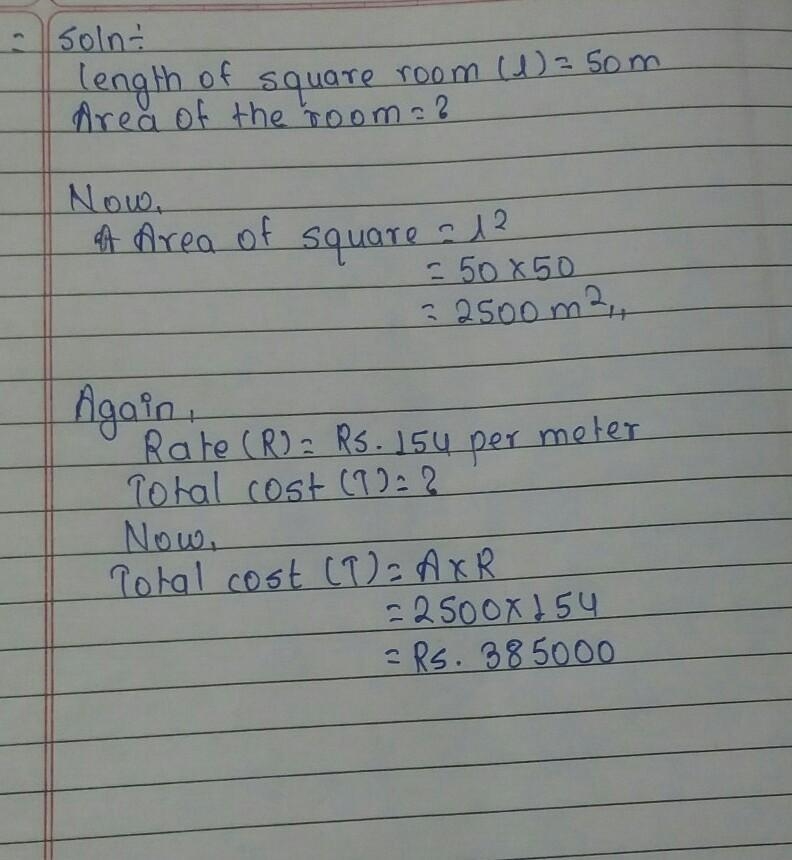 = Soln÷
length of square room (l) = 50m
Area of the room = ?
Now,
Area of square = l²
= 50 × 50
= 2500 m²,,
Again,
Rate (R) = Rs. 154 per meter
Total cost (T) = ?
Now,
Total cost (T) = A × R
= 2500 × 154
= Rs. 385000